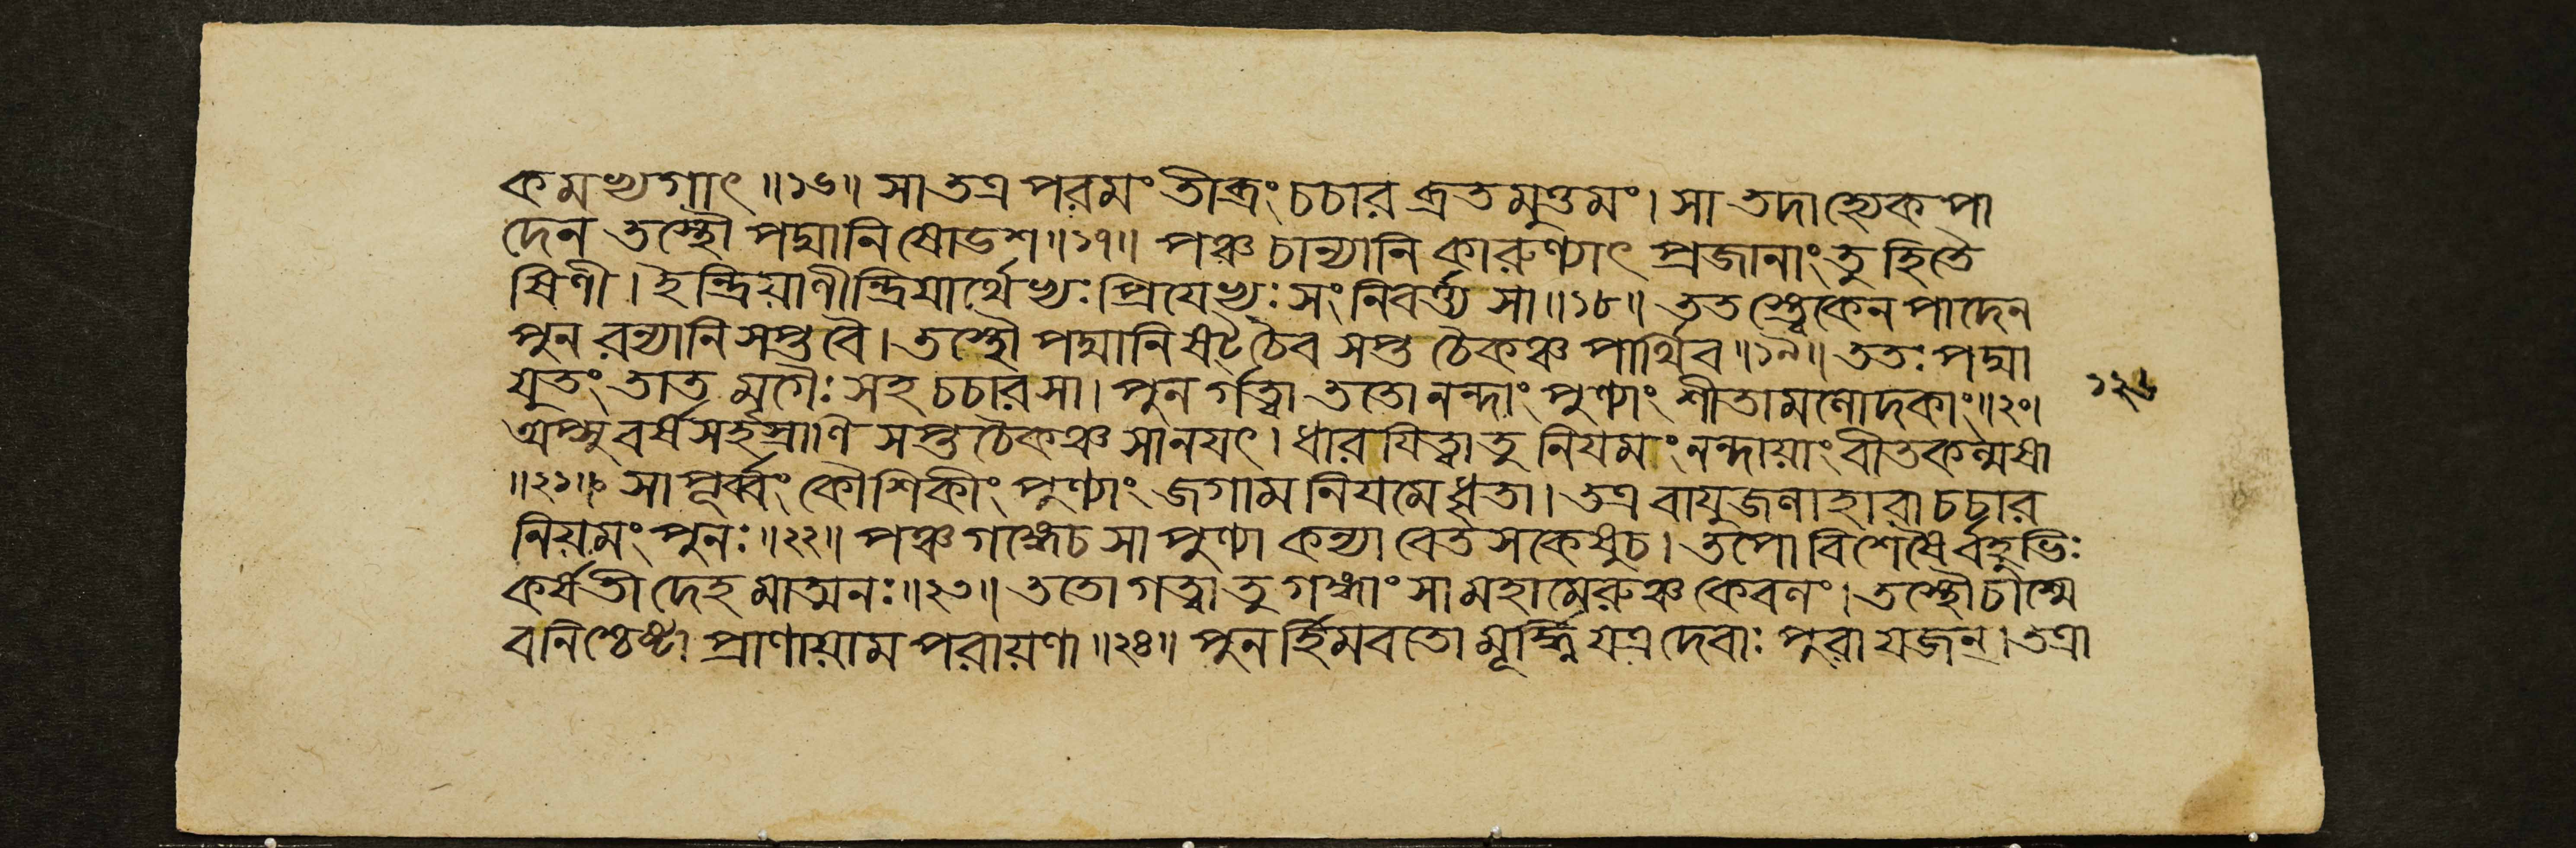 কমভ্যগাৎ ॥১৬॥ সা তত্র পরমং তীব্রং চচার ব্রতমুত্তমং। সা তদাহ্যেকপা
দেন তস্থৌ পদ্মানি ষোডশ ॥১৭॥ পঞ্চ চান্যানি কারুণ্যাৎ প্রজানাং তু হিতৈ
ষিণী। ইন্দ্রিয়াণীন্দ্রিয়ার্থেভ্যঃ প্রিযেভ্যঃ সংনিবর্ত্ত্য সা ॥১৮॥ তত স্ত্বেকেন পাদেন
পুন রন্যানি সপ্ত বৈ। তস্থৌ পদ্মানি ষট্চৈব সপ্ত চৈকঞ্চ পার্থিব ॥১৯॥ ততঃ পদ্মা
যুতং তাত মৃগৈঃ সহ চচার সা। পুন র্গত্বা ততো নন্দাং পুণ্যাং শীতামলোদকাং ॥২০।
অপ্সু বর্ষসহস্রাণি সপ্ত চৈকঞ্চ সানযৎ। ধারযিত্বা তু নিযমং নন্দায়াং বীতকল্মষা
॥২১॥ সা পূর্ব্বং কৌশিকীং পুণ্যাং জগাম নিযমেধৃতা। তত্র বাযুজলাহারা চচার
নিয়মং পুনঃ ॥২২॥ পঞ্চগঙ্গেচ সা পুণ্যা কন্যা বেতসকেষুচ। তপো বিশেষৈর্বহুভিঃ
কর্ষতী দেহমাত্মনঃ ॥২৩॥ ততো গত্বা তু গঙ্গাং সা মহামেরুঞ্চ কেবলং। তস্থৌ চাশ্মে
বনিশ্চেষ্টা প্রাণায়াম পরায়ণা ॥২৪॥ পুন র্হিমবতো মূর্দ্ধ্নি যত্র দেবাঃ পুরা যজন্। তত্রা
১২৬